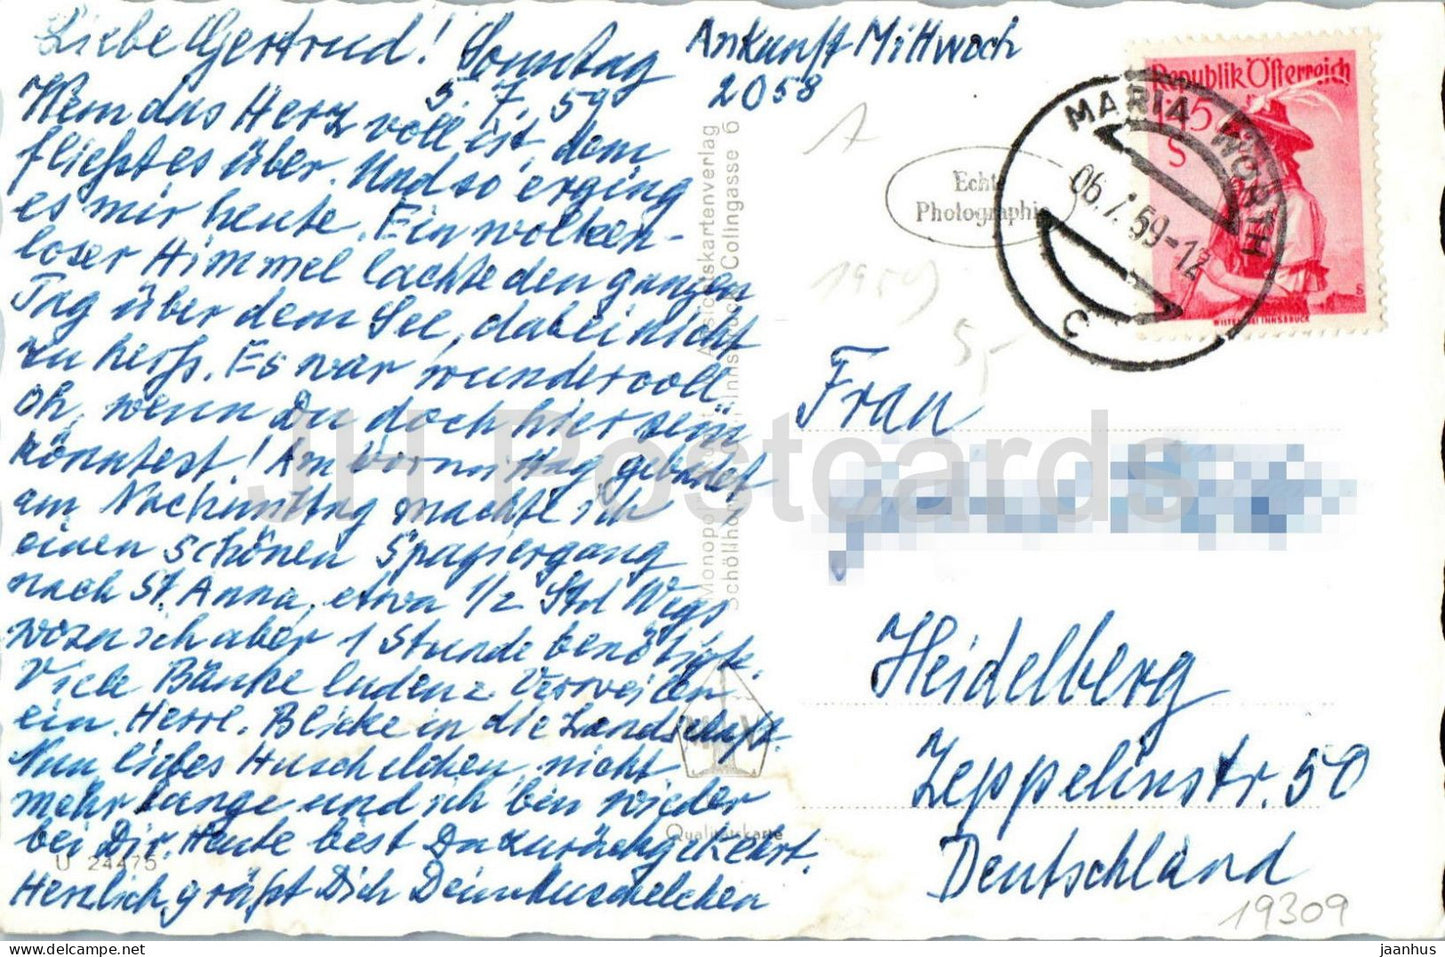 Liebe Gertrud! Sonntag
5. 7. 59
Wem das Herz voll ist, dem
fließt es über. Und so erging
es mir heute. Ein wolken-
loser Himmel lachte den ganzen
Tag über dem See, dabei nicht
zu heiß. Es war wundervoll
oh, wenn Du doch hier sein
könntest! Am Vormittag gebadet
am Nachmittag machte ich
einen schönen Spaziergang
nach St. Anna, etwa 1/2 Std Wegs
wozu ich aber 1 Stunde benötigt.
Viele Bänke luden z. Verweilen
ein. Herrl. Blicke in die Landschaft.
Nun, liebes Huschelchen, nicht
mehr lange und ich bin wieder
bei Dir. Heute bist Du zurückgekehrt.
Herzlich grüßt Dich Dein Huschelchen
U 24475
Ankunft Mittwoch
2058
Monopol Ansichtskartenverlag
Innsbruck, Colingasse 6
Qualitätskarte
Echte
Photographie
Republik Österreich
1.45
S
WIENER INNSBRUCK
MARIA WÖRTH
06.7.59-12
C
1959
5,-
Frau
Heidelberg
Zeppelinstr. 50
Deutschland
19309
JH Postcards
jaanhus